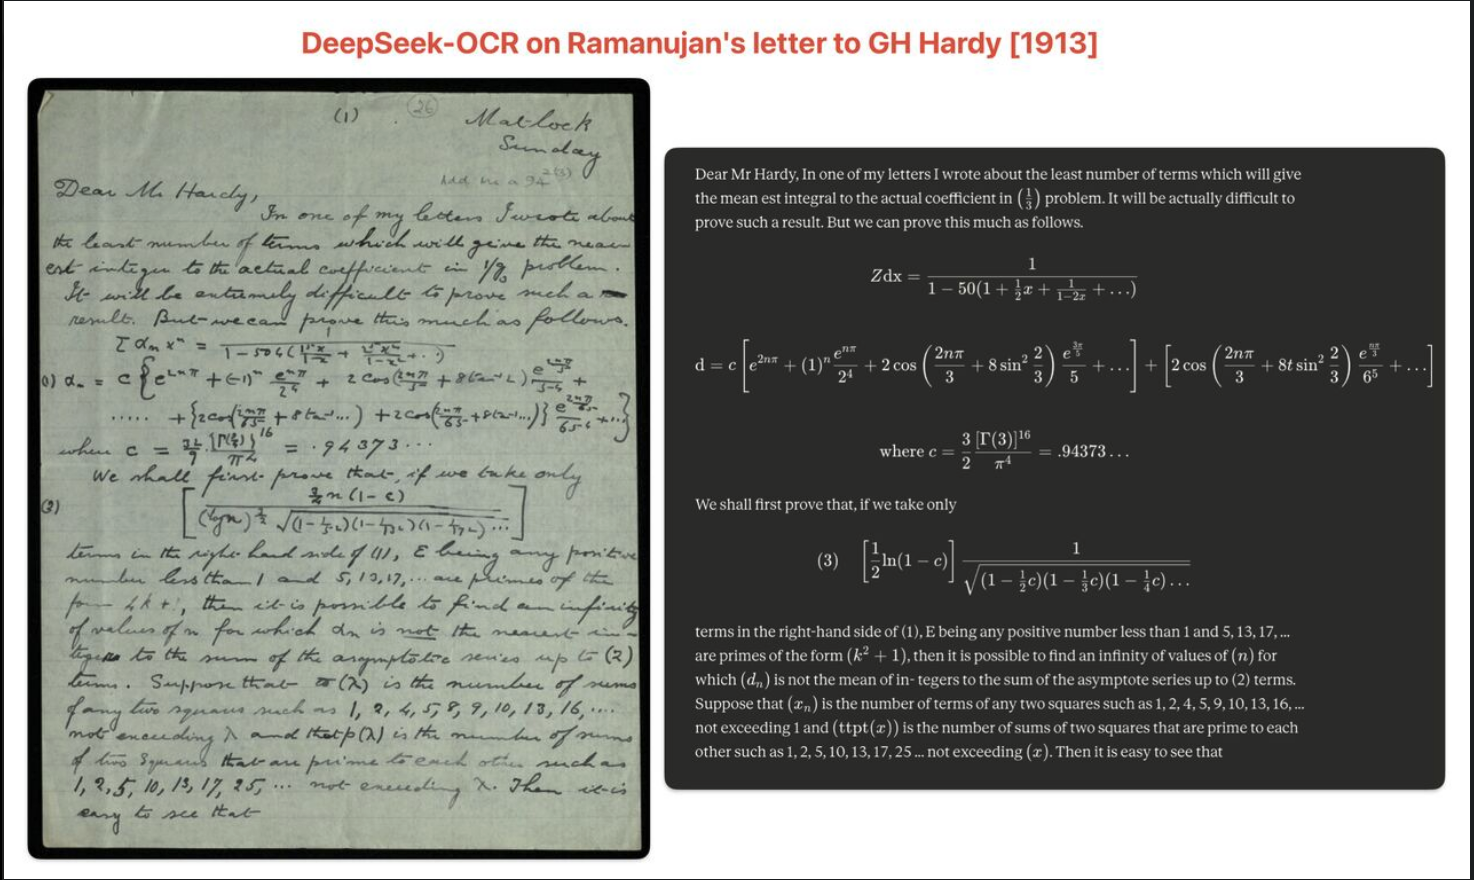 DeepSeek-OCR on Ramanujan's letter to GH Hardy [1913]
(1)
26
Matlock
Sunday
Dear Mr Hardy,
In one of my letters I wrote about
the least number of terms which will give the near-
est integer to the actual coefficient in 1/g problem.
It will be extremely difficult to prove such a
result. But we can prove this much as follows.
where c = = .94373...
We shall first prove that, if we take only
(2)
terms in the right hand side of (1), E being any positive
number less than 1 and 5, 13, 17, ... are primes of the
form 4k+1, then it is possible to find an infinity
of values of n for which αn is not the nearest in-
teger to the sum of the asymptotic series up to (2)
terms. Suppose that (λ) is the number of sums
of any two squares such as 1, 2, 4, 5, 8, 9, 10, 13, 16, ....
not exceeding λ and that p(λ) is the number of sums
of two squares that are prime to each other such as
1, 2, 5, 10, 13, 17, 25, ... not exceeding λ. Then it is
easy to see that
Dear Mr Hardy, In one of my letters I wrote about the least number of terms which will give
the mean est integral to the actual coefficient in (1/3) problem. It will be actually difficult to
prove such a result. But we can prove this much as follows.
Zdx = 1 / (1 − 50(1 + ½x + 1/(1−2x) + ...))
d = c [e^{2nπ} + (1)^n e^{nπ}/2^4 + 2 cos (2nπ/3 + 8 sin² 2/3) e^{3π/5}/5 + ...] + [2 cos (2nπ/3 + 8t sin² 2/3) e^{nπ/3}/6^5 + ...]
where c = 3/2 [Γ(3)]^16/π^4 = .94373...
We shall first prove that, if we take only
(3) [½ ln(1 − c)] 1/√((1 − ½c)(1 − ⅓c)(1 − ¼c)...)
terms in the right-hand side of (1), E being any positive number less than 1 and 5, 13, 17, ...
are primes of the form (k² + 1), then it is possible to find an infinity of values of (n) for
which (d_n) is not the mean of in- tegers to the sum of the asymptote series up to (2) terms.
Suppose that (x_n) is the number of terms of any two squares such as 1, 2, 4, 5, 9, 10, 13, 16, ...
not exceeding 1 and (ttpt(x)) is the number of sums of two squares that are prime to each
other such as 1, 2, 5, 10, 13, 17, 25 ... not exceeding (x). Then it is easy to see that